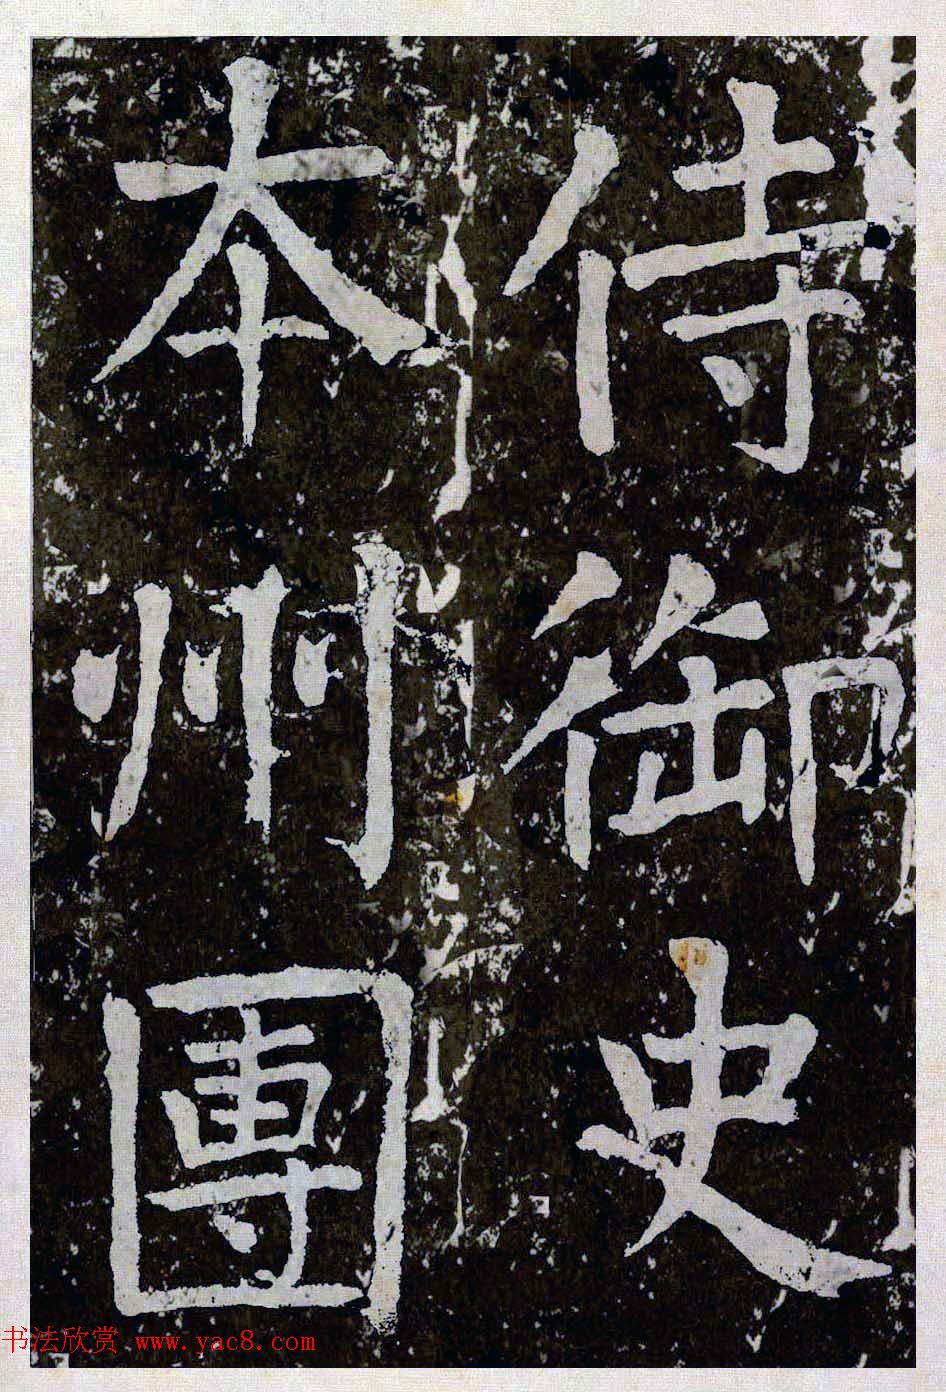 侍御史
本州團
书法欣赏 www.yac8.com